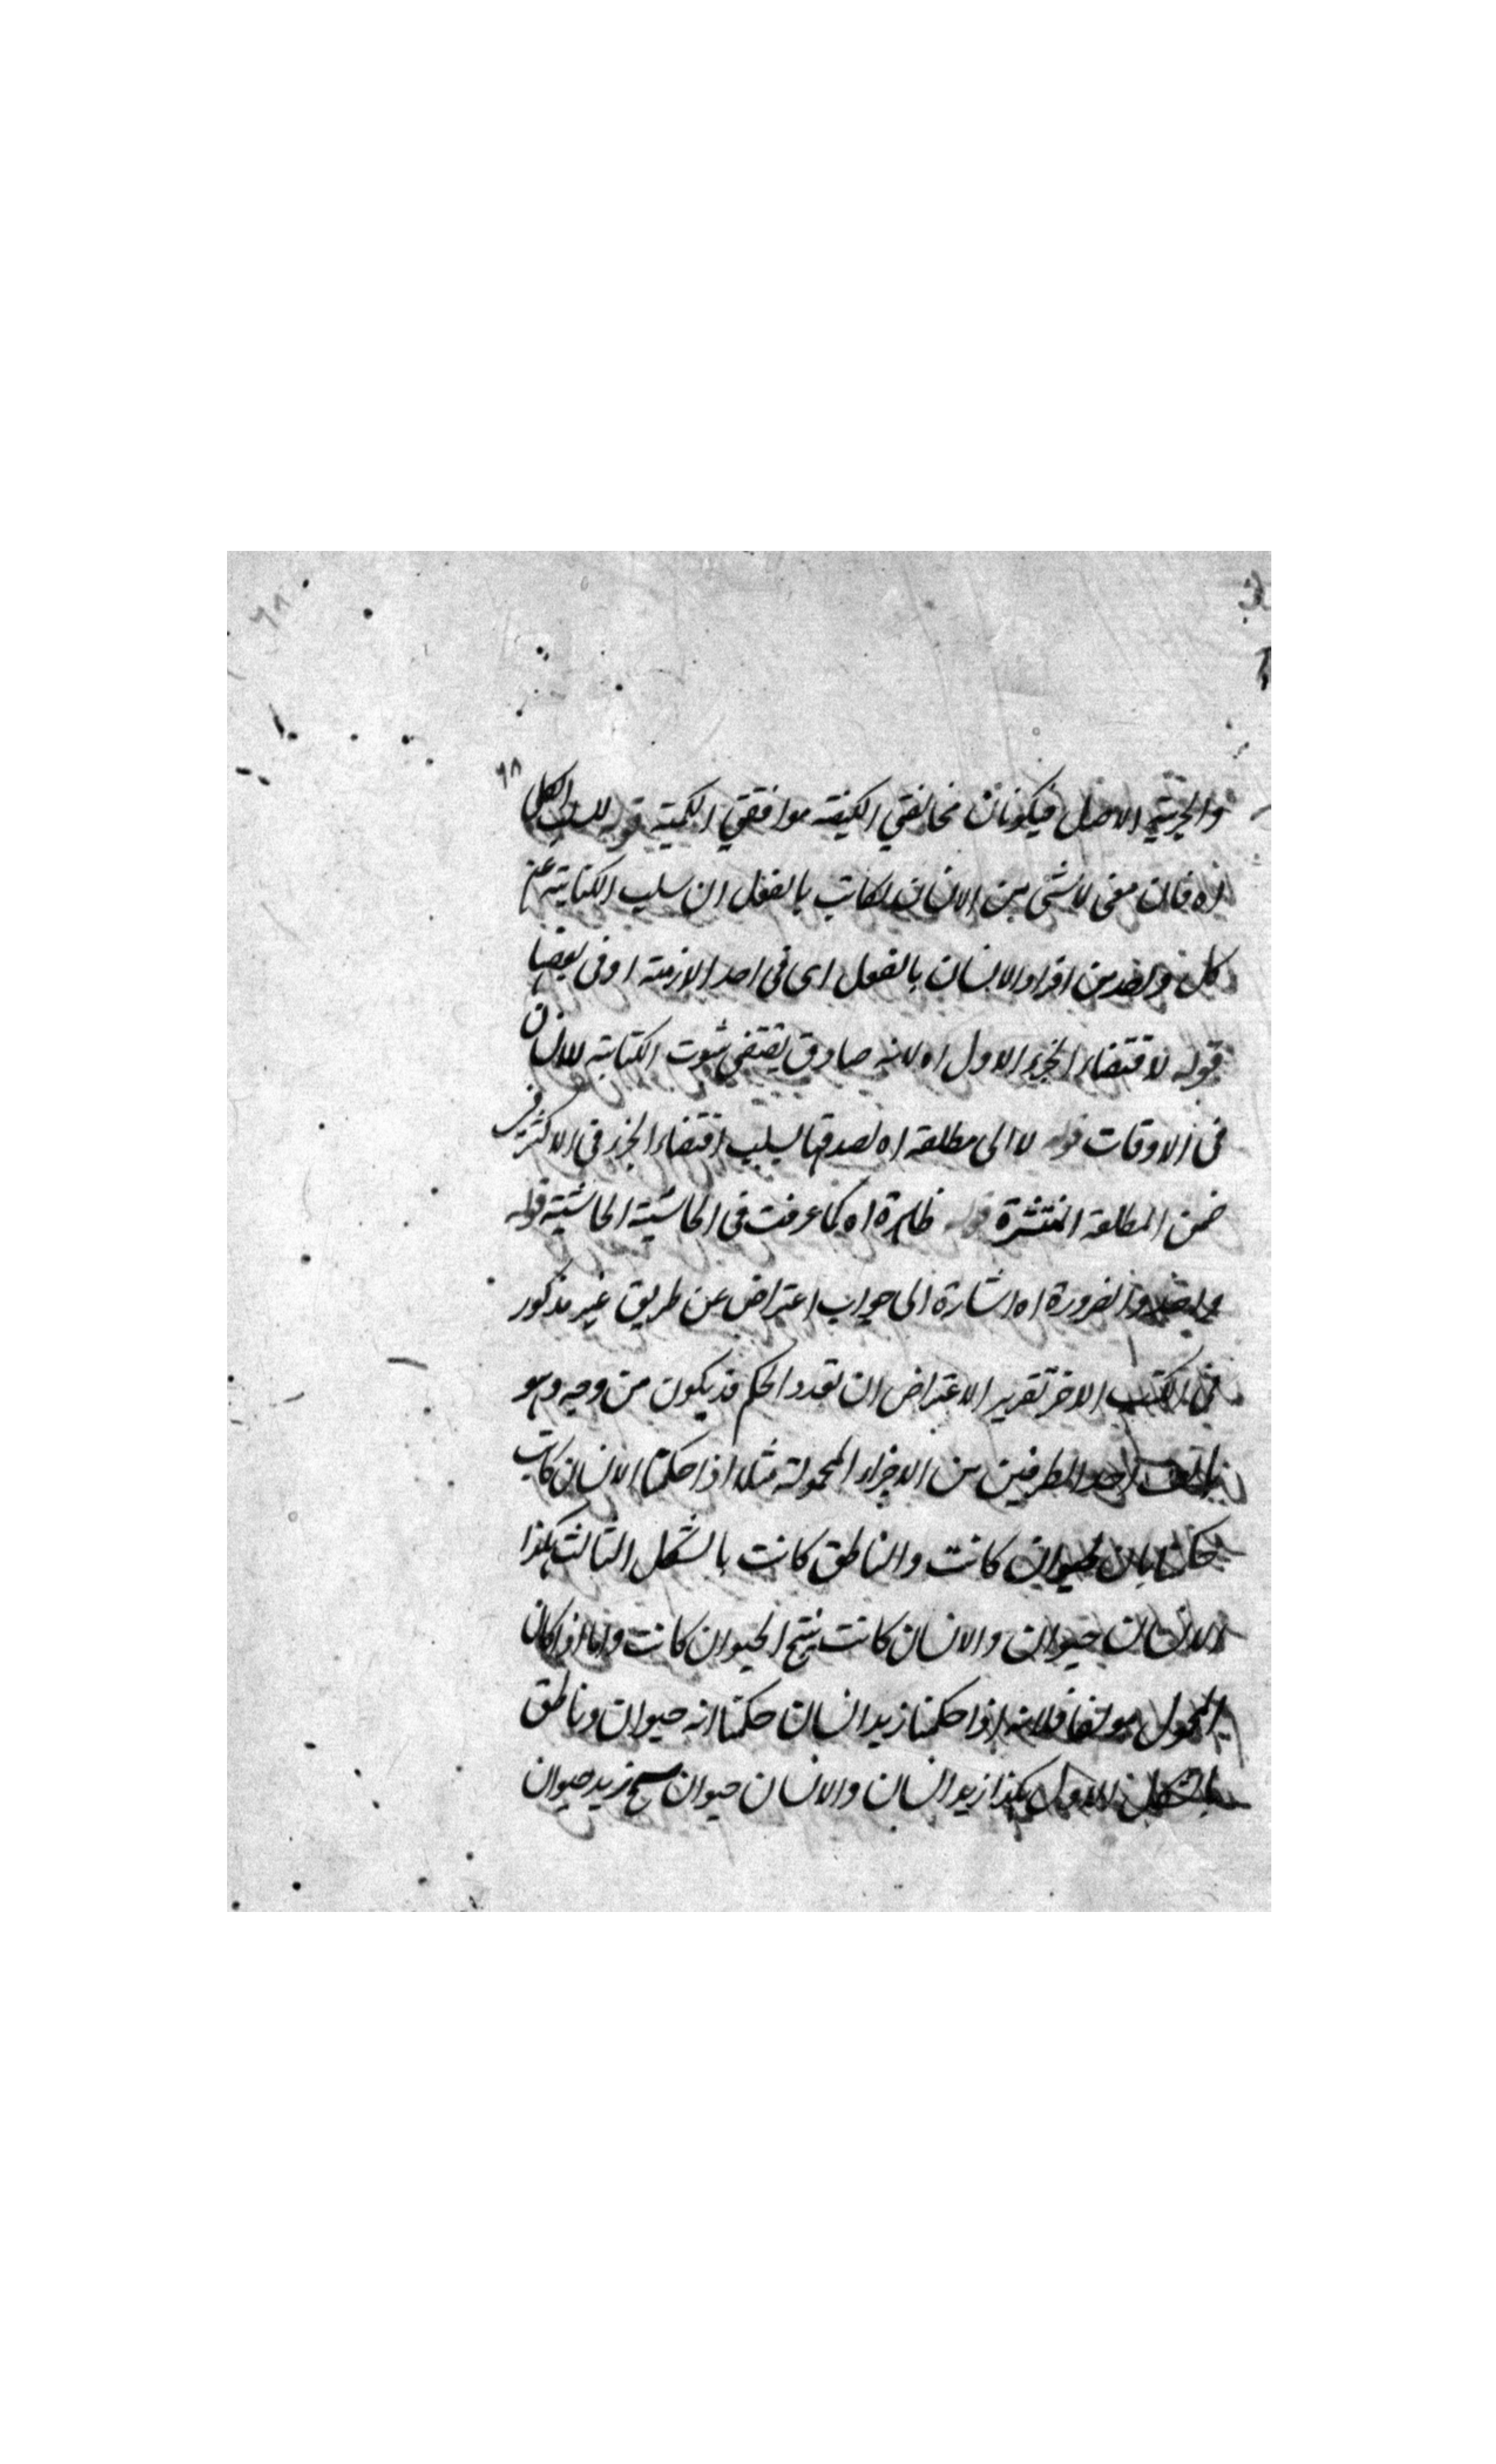 ٦٨
والجزئية الاصل فيكونان مخالفتي الكيفية موافقتي الكمية قوله للسلب الكلي
اه فان معنى لا شئ من الانسان بكاتب بالفعل ان سلب الكتابة عن
كل واحد من افراد الانسان بالفعل اى فى احد الازمنة او فى بعضها
قوله لاقتضاء الجزء الاول اه لانه صادق يقتضى ثبوت الكتابة للانسان
فى الاوقات قوله لا الى مطلقة اه لصدقها لسلب اقتضاء الجزء فى الاكثر فى
ضمن المطلقة المنتشرة قوله ظاهرة اه كما عرفت فى الحاشية الحاشية قوله
والضرورة اه اشارة الى جواب اعتراض عن طريق غير مذكور
فى الكتب الاخر تقرير الاعتراض ان تعدد الحكم قد يكون من وجه وهو
احد الطرفين من الاجزاء المحمولة مثلا اذا حكمنا الانسان كاتب
حكمنا بان الحيوان كاتب والناطق كاتب بالشكل الثالث هكذا
الانسان حيوان والانسان كاتب ينتج الحيوان كاتب واما اذا كان
المحمول مولفا فلانه اذا حكمنا زيد انسان حكمنا انه حيوان وناطق
بالشكل الاول هكذا زيد انسان والانسان حيوان ينتج زيد حيوان